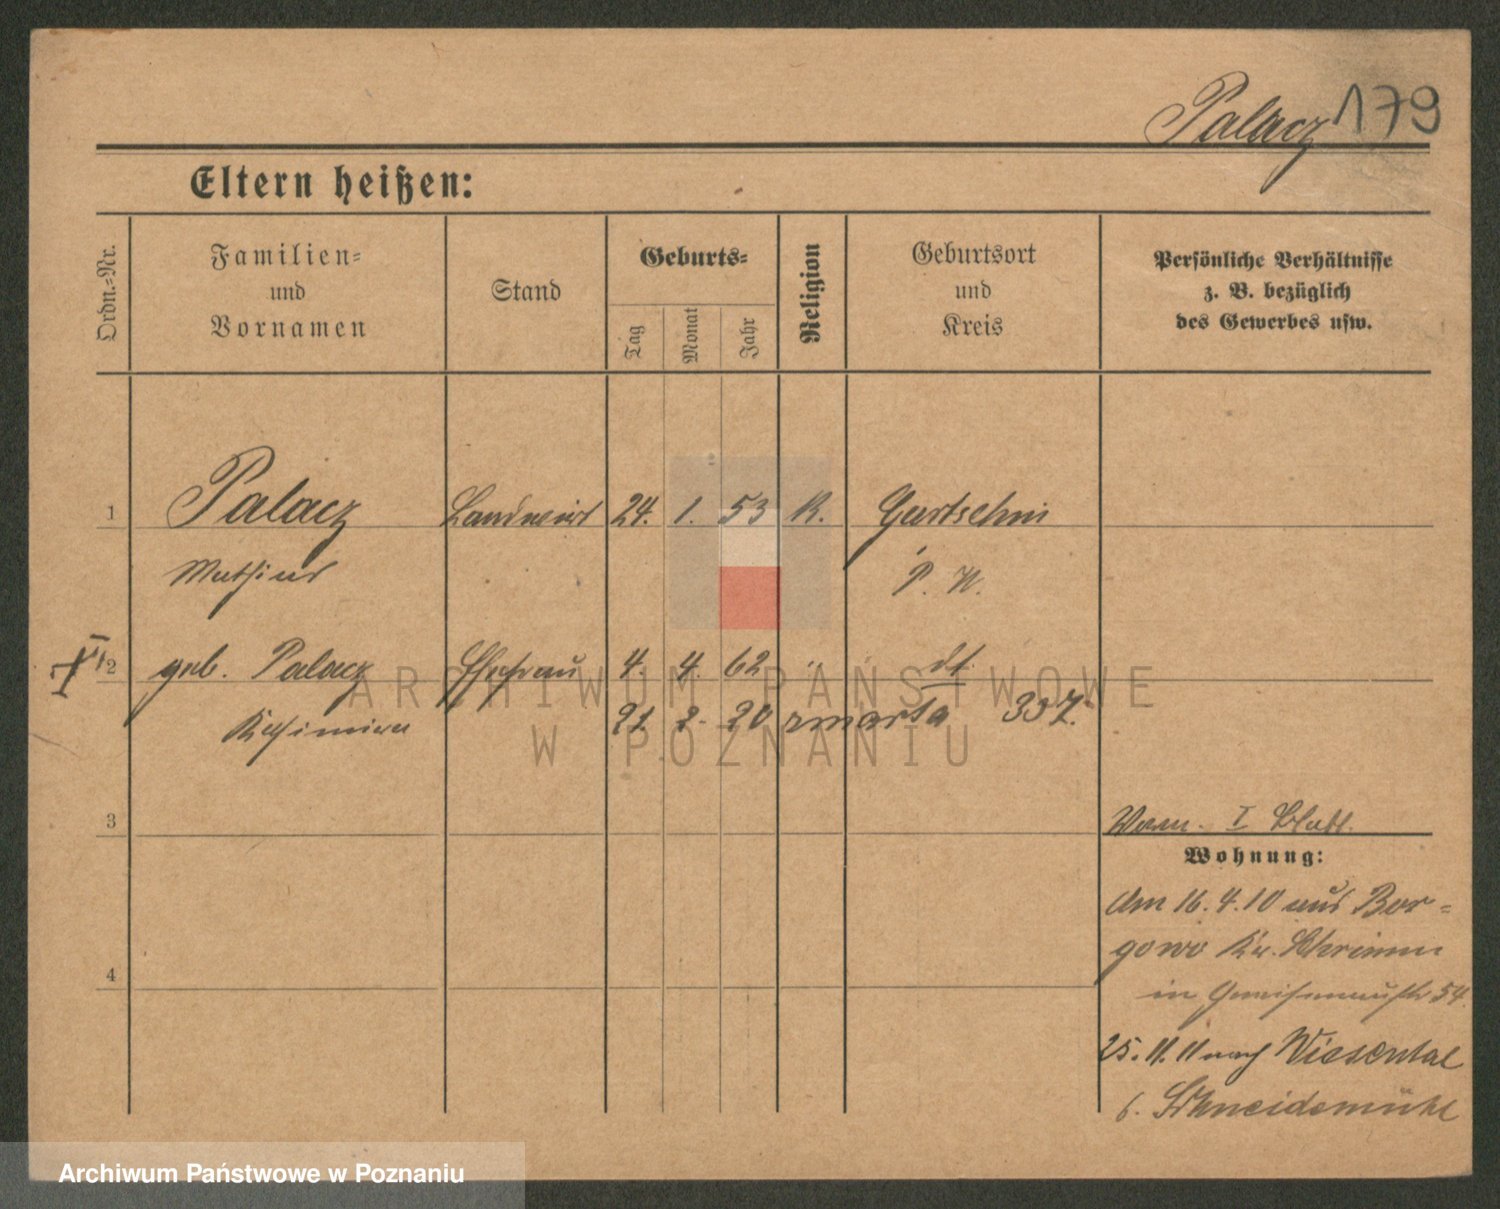 Palacz 179
Eltern heißen:
Ordn.-Nr.
Familien-
und
Vornamen
Stand
Geburts-
Tag
Monat
Jahr
Religion
Geburtsort
und
Kreis
Persönliche Verhältnisse
z. B. bezüglich
des Gewerbes usw.
1 Palacz Landwirt 24. 1. 53 K. Gurtschin
Mathias P. W.
2 geb. Palacz Ehefrau 4. 4. 62 " dt.
Kasimira 21. 2. 20 zmarła 337.
3
I Blatt.
Wohnung:
Am 16.4.10 aus Bor-
gowo Kr. Schrimm
in Gneisenaustr 54.
4
25.11.11 nach Wiesental
b. Schneidemühl
ARCHIWUM PAŃSTWOWE
W POZNANIU
Archiwum Państwowe w Poznaniu